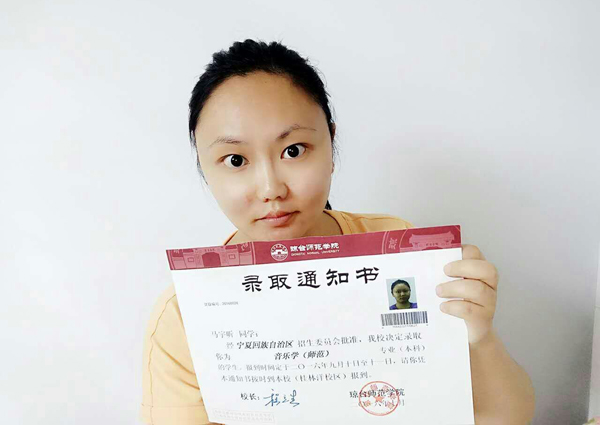 琼台师范学院
QIONGTAI NORMAL UNIVERSITY
录取通知书
马宇昕 同学：
经 宁夏回族自治区 招生委员会批准，我校决定录取
你为 音乐学（师范） 专业（本科）
的学生，报到时间定于二〇一六年九月十日至十一日，请你凭
本通知书按时到本校（桂林洋校区）报到。
校长：
琼台师范学院